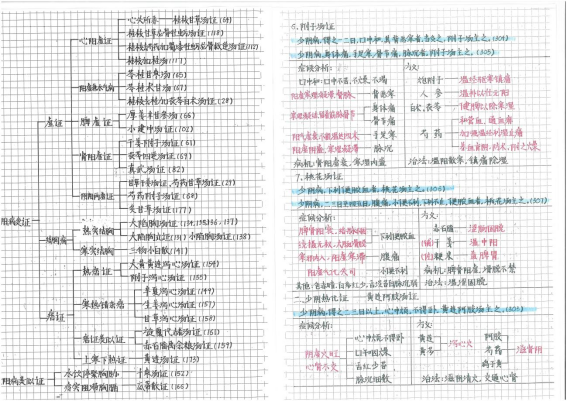 心阳虚证
心火所奉 桂枝甘草汤证(64)
桂枝甘草龙骨牡蛎汤证(118)
桂枝去芍药加蜀漆牡蛎龙骨救逆汤证(112)
桂枝加桂汤(117)
阳虚兼水气病
苓桂甘枣汤(65)
苓桂术甘汤(67)
桂枝去桂加茯苓白术汤(28)
虚证
脾虚证
厚姜半甘参汤(66)
小建中汤证(102)
肾阳虚证
干姜附子汤证(61)
茯苓四逆汤证(69)
真武汤证(82)
阴阳两虚证
甘草干姜汤证、芍药甘草汤证(29)
芍药附子汤证(68)
炙甘草汤证(177)
太阳变证
结胸病
热实结胸
大陷胸汤证(134、135、136、137)
大陷胸丸证(131) 小陷胸汤证(138)
寒实结胸
三物小白散(141)
热痞证
大黄黄连泻心汤证(154)
附子泻心汤证(155)
痞证
寒热错杂痞
半夏泻心汤证(149)
生姜泻心汤证(157)
甘草泻心汤证(158)
痞证类似证
旋覆代赭汤证(161)
赤石脂禹余粮汤证(159)
上寒下热证
黄连汤证(173)
太阳类似证
水饮停聚胸胁 十枣汤证(152)
痰实阻滞胸膈 瓜蒂散证(166)
6、附子汤证
少阴病,得之一二日,口中和,其背恶寒者,当灸之,附子汤主之。(304)
少阴病,身体痛,手足寒,骨节痛,脉沉者,附子汤主之。(305)
症候分析: 方义:
口中和:口中不苦、不燥、不渴 炮附子 温经驱寒镇痛
背恶寒 人参 温补以壮元阳
身体痛 白术、茯苓 健脾以除寒湿
骨节痛
手足寒 芍药
脉沉
病机:肾阳虚衰,寒湿内盛 治法:温阳散寒,镇痛除湿
7、桃花汤证
少阴病,下利便脓血者,桃花汤主之。(306)
少阴病,二三日至四五日,腹痛,小便不利,下利不止,便脓血者,桃花汤主之。(307)
症候分析: 方义:
下利便脓血 赤石脂 涩肠固脱
干姜 温中阳
腹痛 粳米 益脾胃
小便不利 病机:脾肾阳衰,滑脱不禁
治法:温涩固脱
二、少阴热化证 黄连阿胶汤证
少阴病,得之二三日以上,心中烦,不得卧,黄连阿胶汤主之。(303)
症候分析: 方义:
阴虚火旺 心中烦,不得卧 黄连 泻心火 阿胶 滋肾阴
心肾不交 口干咽燥 黄芩 芍药
舌红少苔 鸡子黄
脉沉细数 治法:滋阴清火,交通心肾